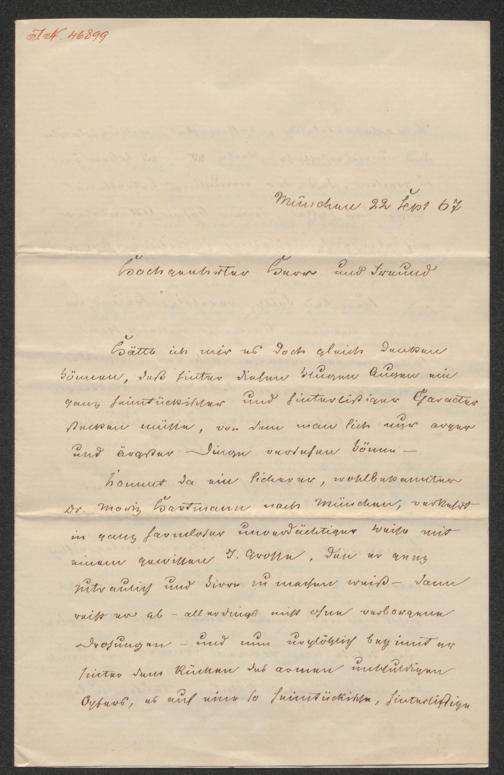 I.N. 46899
München 22 Sept 67
Hochgeehrter Herr und Freund
Hätte ich mir es doch gleich denken
können, daß hinter diesen klugen Augen ein
ganz heimtückischer und hinterlistiger Character
stecken müsse, von dem man sich nur arger
und ärgster Dinge versehen könne –
Kommt da ein sicherer, wohlbekannter
Dr. Moriz Hartmann nach München, verkehrt
in ganz harmloser unverdächtiger Weise mit
einem gewissen J. Grosse, den er ganz
zutraulich und kirre zu machen weiß – dann
reist er ab – allerdings nicht ohne verborgene
Drohungen – und nun urplötzlich beginnt er
hinter dem Rücken des armen unschuldigen
Opfers, es auf eine so heimtückische, hinterlistige